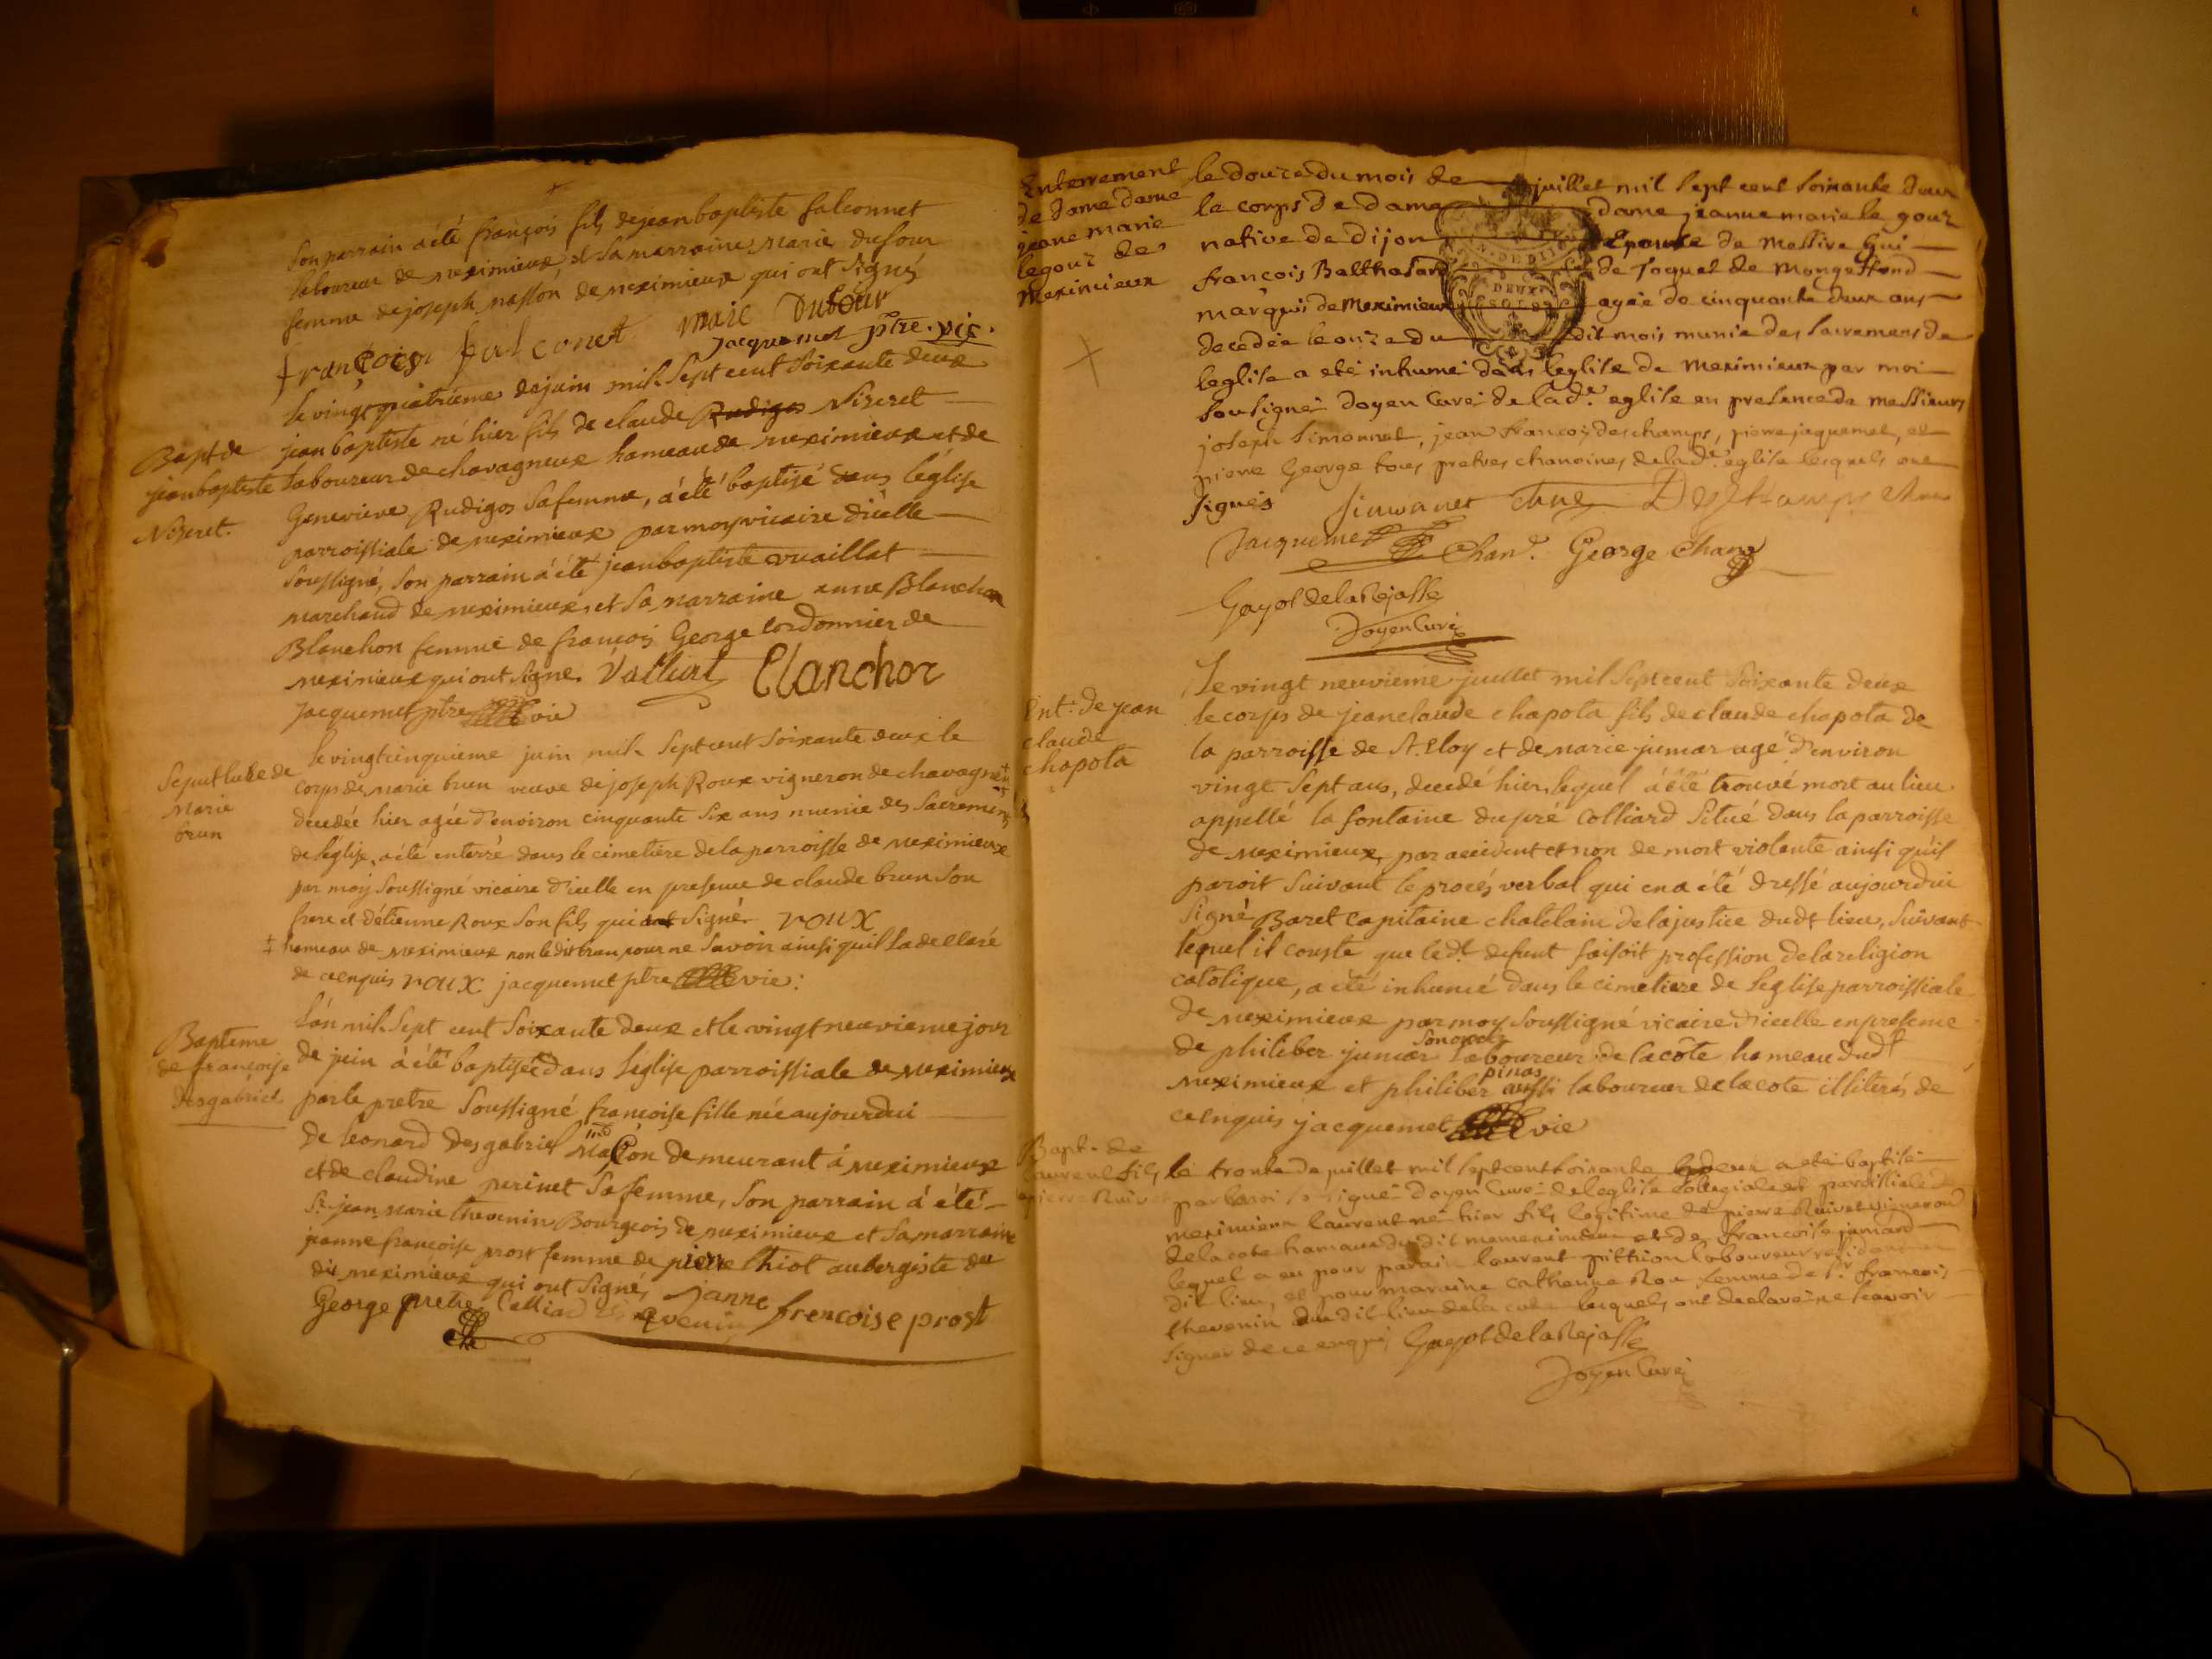 son parrain a été françois fils de jean baptiste falconnet
laboureur de meximieux et sa marraine marie dufour
femme de joseph nasson de meximieux qui ont signés
françois falconet marie Dufour
jacquemet ptre. vic.
Bapt de
jean baptiste
Niseret.
le vingt quatrieme de juin mil sept cent soixante deux
jean baptiste né hier fils de claude Rudigos Niseret
laboureur de chavagneux hameau de meximieux et de
Genevieve Rudigos sa femme, a été baptisé dans l'église
parroissiale de meximieux par moy vicaire d'icelle
soussigné, son parrain a été jean baptiste vuaillat
marchand de meximieux, et sa marraine anne Blanchon
Blanchon femme de françois George cordonnier de
meximieux qui ont signe. Valliat Blanchor
jacquemet ptre vic
Sepulture de
Marie
brun
le vingt cinquieme juin mil sept cent soixante deux le
corps de marie brun veuve de joseph Roux vigneron de chavagneux
decedée hier agée d'environ cinquante six ans munie des sacremens
de l'église, a été enterré dans le cimetiere de la parroisse de meximieux
par moy soussigné vicaire d'icelle en presence de claude brun son
frere et d'étienne Roux son fils qui ont signé. roux
‡ hameau de meximieux non ledit brun pour ne savoir ainsi quil la declaré
de ce enquis roux jacquemet ptre vic:
Bapteme
de françoise
desgabriel
L'an mil sept cent soixante deux et le vingt neuvieme jour
de juin a été baptisée dans l'église parroissiale de meximieux
par le pretre soussigné françoise fille née aujourdui
de leonard desgabriel maçon demeurant à meximieux
et de claudine perinet sa femme, son parrain a été
Sr. jean marie thevenin Bourgeois de meximieux et sa marraine
jeanne françoise prost femme de pierre thiot aubergiste du
dit meximieux qui ont signés
George pretre janne frencoise prost
Enterrement
de dame dame
jeane marie
legouz de
Meximieux
le douze du mois de juillet mil sept cent soixante deux
le corps de dame dame jeanne marie le gouz
native de dijon Epouse de Messire Gui
françois Balthasard de Joquet de Mongeffond
marquis de Meximieux agée de cinquante deux ans
decedée le onze du dit mois munie des sacremens de
leglise a eté inhumé dans leglise de Meximieux par moi
sousigné doyen curé de lade. eglise en presence de messieurs
joseph Simonnet, jean françois deschamps, pierre jaquemet, et
pierre George tous pretres chanoines de lade. eglise lesquels ont
signés Simonnet chne Deschamps chne
Jacquemet Chane. George Chane
Gayot de la Rejasse
doyen Curé
Ent. de jean
claude
chapota
Le vingt neuvieme juillet mil sept cent soixante deux
le corps de jean claude chapota fils de claude chapota de
la parroisse de St. Eloy et de marie jumar agé d'environ
vingt sept ans, decedé hier, lequel a été trouvé mort au lieu
appellé la fontaine du pré Colliard situé dans la parroisse
de meximieux, par accident et non de mort violente ainsi qu'il
paroit suivant le procés verbal qui en a été dressé aujourdui
signé Baret capitaine chatelain de la justice dudt lieu, suivant
lequel il conste que le dt. defunt faisoit profession de la religion
catolique, a été inhumé dans le cimetiere de l'eglise parroissiale
de meximieux par moy soussigné vicaire d'icelle en presence
de philiber jumar son oncle laboureur de la côte hameau dudt
meximieux et philiber pinas aussi laboureur de la cote illiterés de
ce enquis jacquemet vic
Bapt. de
Laurent fils
a pierre Ruivet
le trente de juillet mil sept cent soixante deux a eté baptisé
par moi sousigné doyen curé de leglise collegiale et paroissiale de
meximieux laurent né hier fils legitime de pierre Ruivet vigneron
de la cote hameau du dit meximieux et de françoise jumard
lequel a eu pour parain laurent pitthion laboureur residant au
dit lieu, et pour maraine catherine Rou femme de Sr. françois
thevenin du dit lieu de la cote lesquels ont declaré ne scavoir
signer de ce enquis Gayot de la Rejasse
doyen Curé